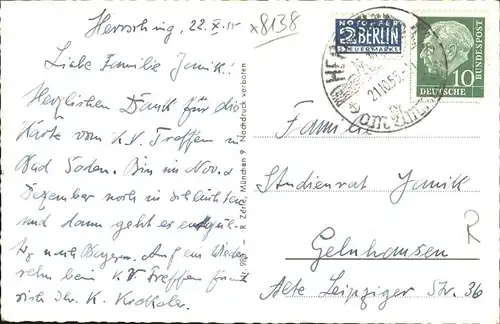 Herrsching, 22.X.55
x8138
Liebe Familie Janik!
Herzlichen Dank für die
Karte vom K.V. Treffen in
Bad Soden. Bin im Nov. u
Dezember noch in
und dann geht es endgül-
tig nach Bayern. Auf ein Wieder-
sehen beim K.V. Treffen freut
sich Ihr K.
Zerle, München 9 Nachdruck verboten
NOTOPFER
2 BERLIN
STEUERMARKE
DEUTSCHE BUNDESPOST
10
21.10.55
Familie
Studienrat Janik
Gelnhausen
Alte Leipziger Str. 36
R